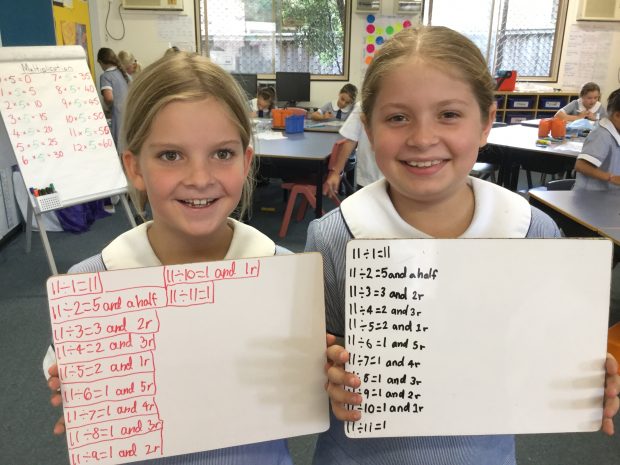 Multiplication
0×5=0
1×5=5
2×5=10
3×5=15
4×5=20
5×5=25
6×5=30
7×5=35
8×5=40
9×5=45
10×5=50
11×5=55
12×5=60
11÷1=11
11÷2=5 and a half
11÷3=3 and 2r
11÷4=2 and 3r
11÷5=2 and 1r
11÷6=1 and 5r
11÷7=1 and 4r
11÷8=1 and 3r
11÷9=1 and 2r
11÷10=1 and 1r
11÷11=1
11÷1=11
11÷2=5 and a half
11÷3=3 and 2r
11÷4=2 and 3r
11÷5=2 and 1r
11÷6=1 and 5r
11÷7=1 and 4r
11÷8=1 and 3r
11÷9=1 and 2r
11÷10=1 and 1r
11÷11=1